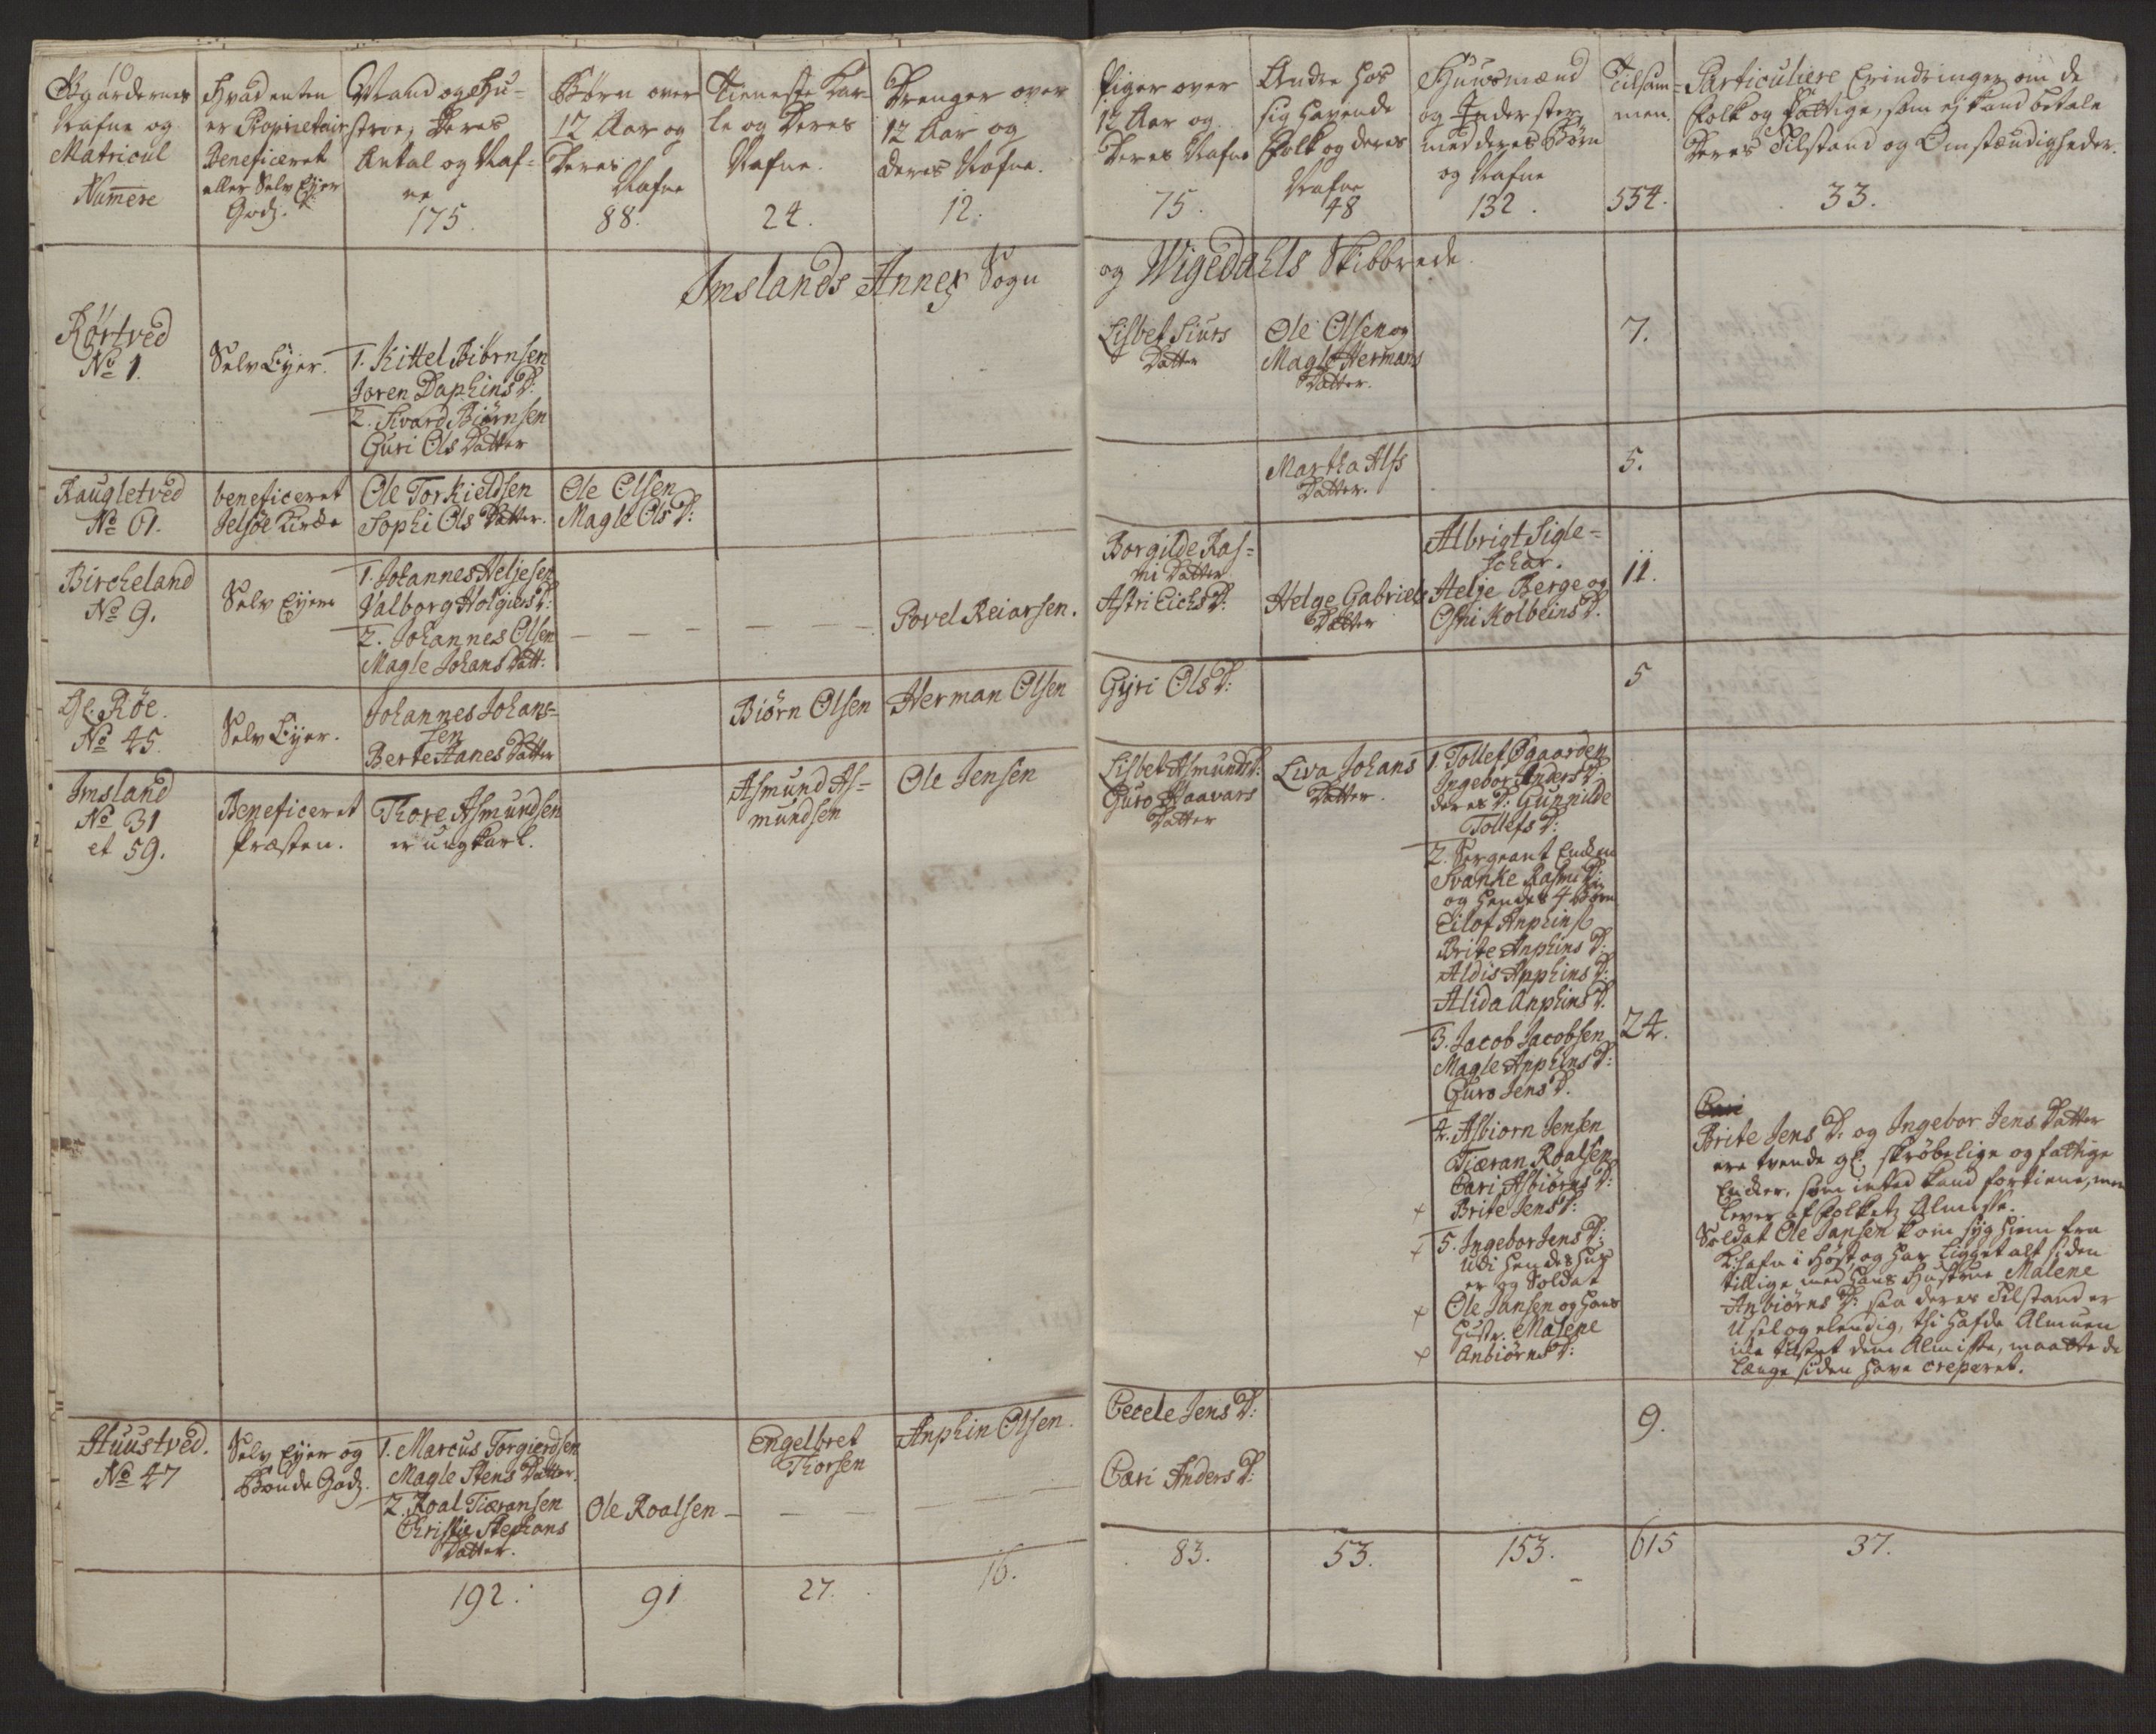 10
Gaardernes
Nafne og
Matricul
Numere
Hvad enten
er Proprietair
Beneficeret
eller Selv Eyer
Godz.
Mand og Hu-
stroe, Deres
Antal og Naf-
ne
175.
Börn over
12 Aar og
Deres
Nafne
88.
Tieneste Kar-
le og Deres
Nafne.
24.
Drenger over
12 Aar og
deres Nafne.
12.
Piger over
12 Aar og
Deres Nafne
75.
Andre hos
sig havende
Folk og deres
Nafne
48
Huusmænd
og Inderster
med deres Börn
og Nafne
132.
Tilsam-
men.
554.
Particuliere Erindringer om de
Folk og Fattige, som ej kand betale
Deres Tilstand og Omstændigheder.
33.
Imslands Annex Sogn
og Wigedahls Skibbrede.
Rörtved
No 1.
Selv Eyer.
1. Kittel Biörnsen
Joren Daphins D.
2. Sivard Biörnsen
Guri Ols Datter
Lisbet Siurs
Datter
Ole Olsen og
Magle Hermans
Datter.
7.
Raugletved
No 61.
beneficeret
Jelsöe Kirke
Ole Torkieldsen
Sophi Ols Datter.
Ole Olsen
Magle Ols D:
Martha Alfs
Datter.
5.
Bircheland
No 9.
Selv Eyere
1. Johannes Heljesen
Valborg Holgiers D:
2. Johannes Olsen
Magle Johans Datt:
Povel Reiarsen.
Borgilde Ras-
mi Datter
Astri Eichs D:
Helge Gabriels
Datter
Albrigt Sigle-
schar.
Helje Berge og
Ostri Kolbeins D.
11.
Gl. Röe.
No 45.
Selv Eyer.
Johannes Johans-
sen
Berte Hanes Datter
Biörn Olsen
Herman Olsen
Gyri Ols D:
5
Imsland
No 31
et 59.
Beneficeret
Præsten.
Thore Asmundsen
er ung Karl.
Asmund As-
mundsen
Ole Jensen
Lisbet Asmunds D:
Guro Haavars
Datter
Liva Johans
Datter.
1. Tollef Ögaarden
Ingebor Anders D:
deres D: Gunnilde
Tollefs D:
2. Sergeant Enken
Svanke Rasmi D:
og hendes 4 Börn
Eilof Anphins
Brite Anphins D:
Aldis Anphins D:
Alida Anphins D.
3. Jacob Jacobsen
Magle Anphins D:
Guro Jens D.
24.
4. Asbiorn Jensen
Tiæran Roalsen
Cari Asbiörns D:
+ Brite Jens D:
+ 5. Ingebor Jens D:
Udi hendes Huus
er og Soldat
+ Ole Jansen og hans
Hustr. Malene
+ Anbiörns D:
Cari
Brite Jens D: og Ingebor Jens Datter
ere tvende gl: skröbelige og fattige
Enker, som intet kand fortiene, men
lever af Folkets Almisse.
Soldat Ole Jansen kom syg hiem fra
i Höst, og har ligget alt siden
tillige med hans Hustrue Malene
Anbiörns D: saa deres Tilstand er
Usel og elendig, thi hafde Almuen
icke tilstet dem Almisse, maatte de
længe siden have creperet.
Huustved.
No 47
Selv Eyer og
Bonde Godz.
1. Marcus Torgierdsen
Magle Stens Datter.
2. Roal Tiæransen
Christie Stephans
Datter.
Ole Roalsen
Engelbret
Thorsen
Anphin Olsen.
Cecele Jens D:
Cari Anders D:
9.
192.
91
27.
16.
83.
53.
153.
615
37.